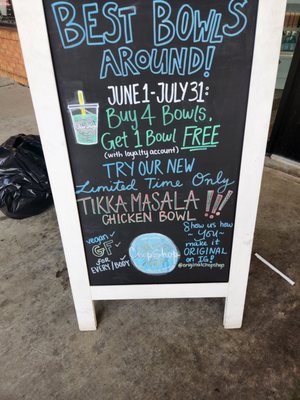 BEST BOWLS
AROUND!
JUNE 1-JULY 31:
Buy 4 Bowls,
Get 1 Bowl FREE
(with loyalty account)
TRY OUR NEW
Limited Time Only
TIKKA MASALA
CHICKEN BOWL !!!
vegan ✓
GF ✓
FOR
EVERY/BODY
Show us how
~ YOU ~
make it
ORIGINAL
on IG!
@originalchopshop